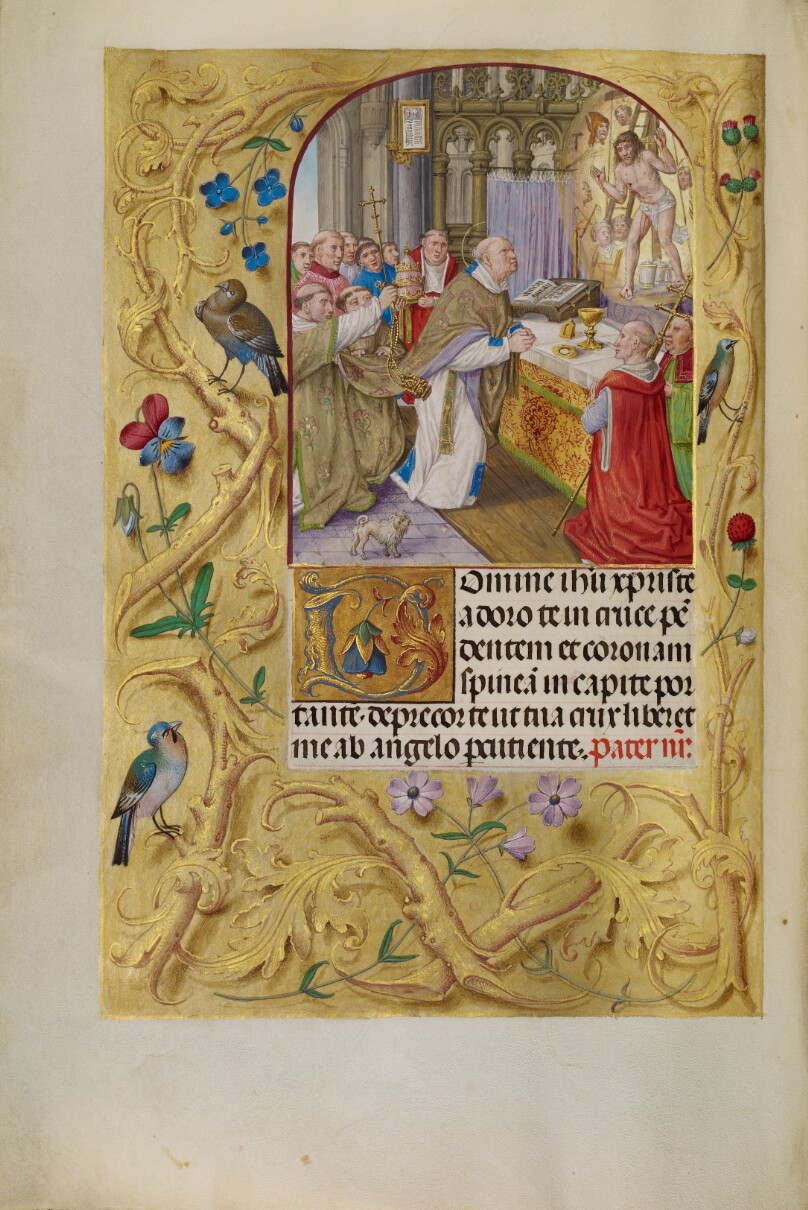 Domine ihū xpriste
adoro te in cruce pē
dentem et coronam
spineā in capite por
tante. deprecor te ut tua crux liberet
me ab angelo pcutiente. Pater nr̄: